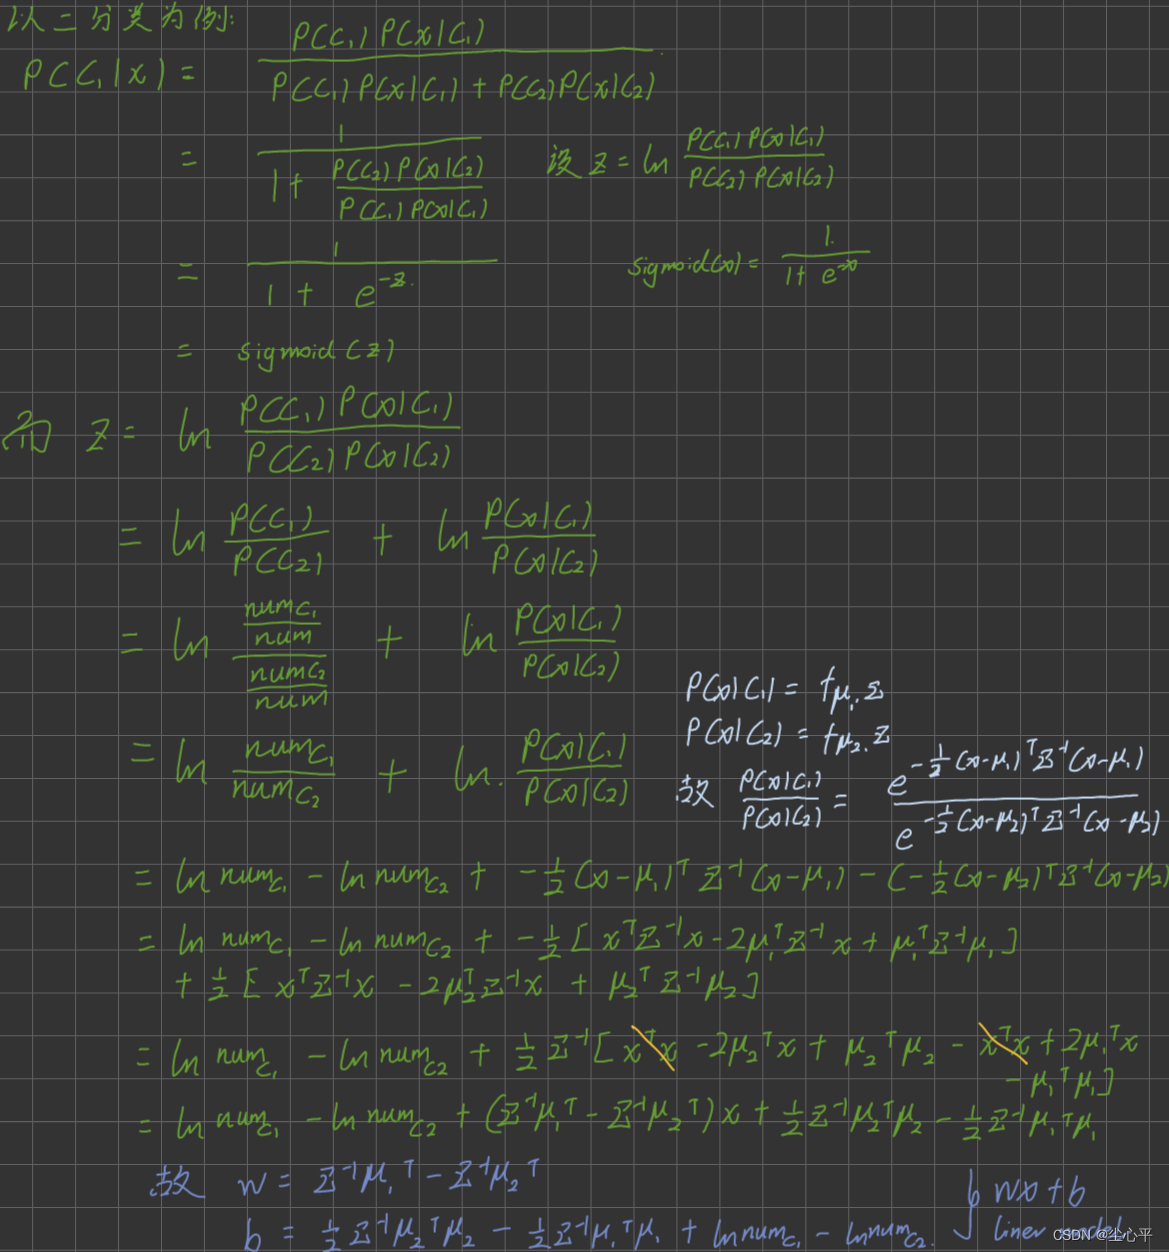 以二分类为例:
P(C₁|x) = P(C₁)P(x|C₁) / (P(C₁)P(x|C₁) + P(C₂)P(x|C₂))
= 1 / (1 + P(C₂)P(x|C₂) / (P(C₁)P(x|C₁)))  设 z = ln P(C₁)P(x|C₁) / (P(C₂)P(x|C₂))
= 1 / (1 + e^(-z))  sigmoid(x) = 1 / (1 + e^(-x))
= sigmoid(z)
而 z = ln P(C₁)P(x|C₁) / (P(C₂)P(x|C₂))
= ln P(C₁)/P(C₂) + ln P(x|C₁)/P(x|C₂)
= ln (numC₁/num) / (numC₂/num) + ln P(x|C₁)/P(x|C₂)
P(x|C₁) = fμ₁.Σ
P(x|C₂) = fμ₂.Σ
= ln numC₁/numC₂ + ln. P(x|C₁)/P(x|C₂)
故 P(x|C₁)/P(x|C₂) = e^(-½(x-μ₁)ᵀΣ⁻¹(x-μ₁)) / e^(-½(x-μ₂)ᵀΣ⁻¹(x-μ₂))
= ln numC₁ - ln numC₂ + -½(x-μ₁)ᵀΣ⁻¹(x-μ₁) - (-½(x-μ₂)ᵀΣ⁻¹(x-μ₂)
= ln numC₁ - ln numC₂ + -½[xᵀΣ⁻¹x - 2μ₁ᵀΣ⁻¹x + μ₁ᵀΣ⁻¹μ₁]
+ ½[xᵀΣ⁻¹x - 2μ₂ᵀΣ⁻¹x + μ₂ᵀΣ⁻¹μ₂]
= ln numC₁ - ln numC₂ + ½Σ⁻¹[xᵀx - 2μ₂ᵀx + μ₂ᵀμ₂ - xᵀx + 2μ₁ᵀx
- μ₁ᵀμ₁]
= ln numC₁ - ln numC₂ + (Σ⁻¹μ₁ᵀ - Σ⁻¹μ₂ᵀ)x + ½Σ⁻¹μ₂ᵀμ₂ - ½Σ⁻¹μ₁ᵀμ₁
故 w = Σ⁻¹μ₁ᵀ - Σ⁻¹μ₂ᵀ
wx + b
b = ½Σ⁻¹μ₂ᵀμ₂ - ½Σ⁻¹μ₁ᵀμ₁ + ln numC₁ - ln numC₂.
liner
CSDN @尘心平